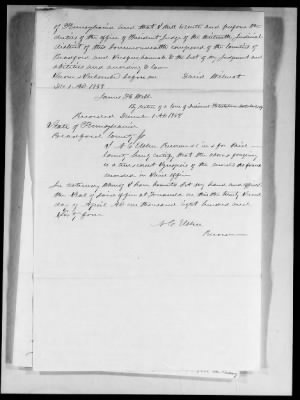 of Pennsylvania and that I will execute and perform the
duties of the office of President Judge of the thirteenth Judicial
district of this Commonwealth composed of the Counties of
Bradford and Susquehanna to the best of my judgement and
abilities and according to law
Sworn & Subscribed before me David Wilmot
Dec 1. AD. 1857
James H Webb
By virtue of a
Recorded December 1. AD 1857
State of Pennsylvania
Bradford County ss
I A C Elsbree Recorder in & for said
County hereby certify, that the above foregoing
is a true and correct of the records
recorded in said office
In testimony whereof I have hereunto set my hand and affixed
the Seal of said office at Towanda on this the
day of April AD one thousand eight hundred and
four
A C Elsbree
Recorder